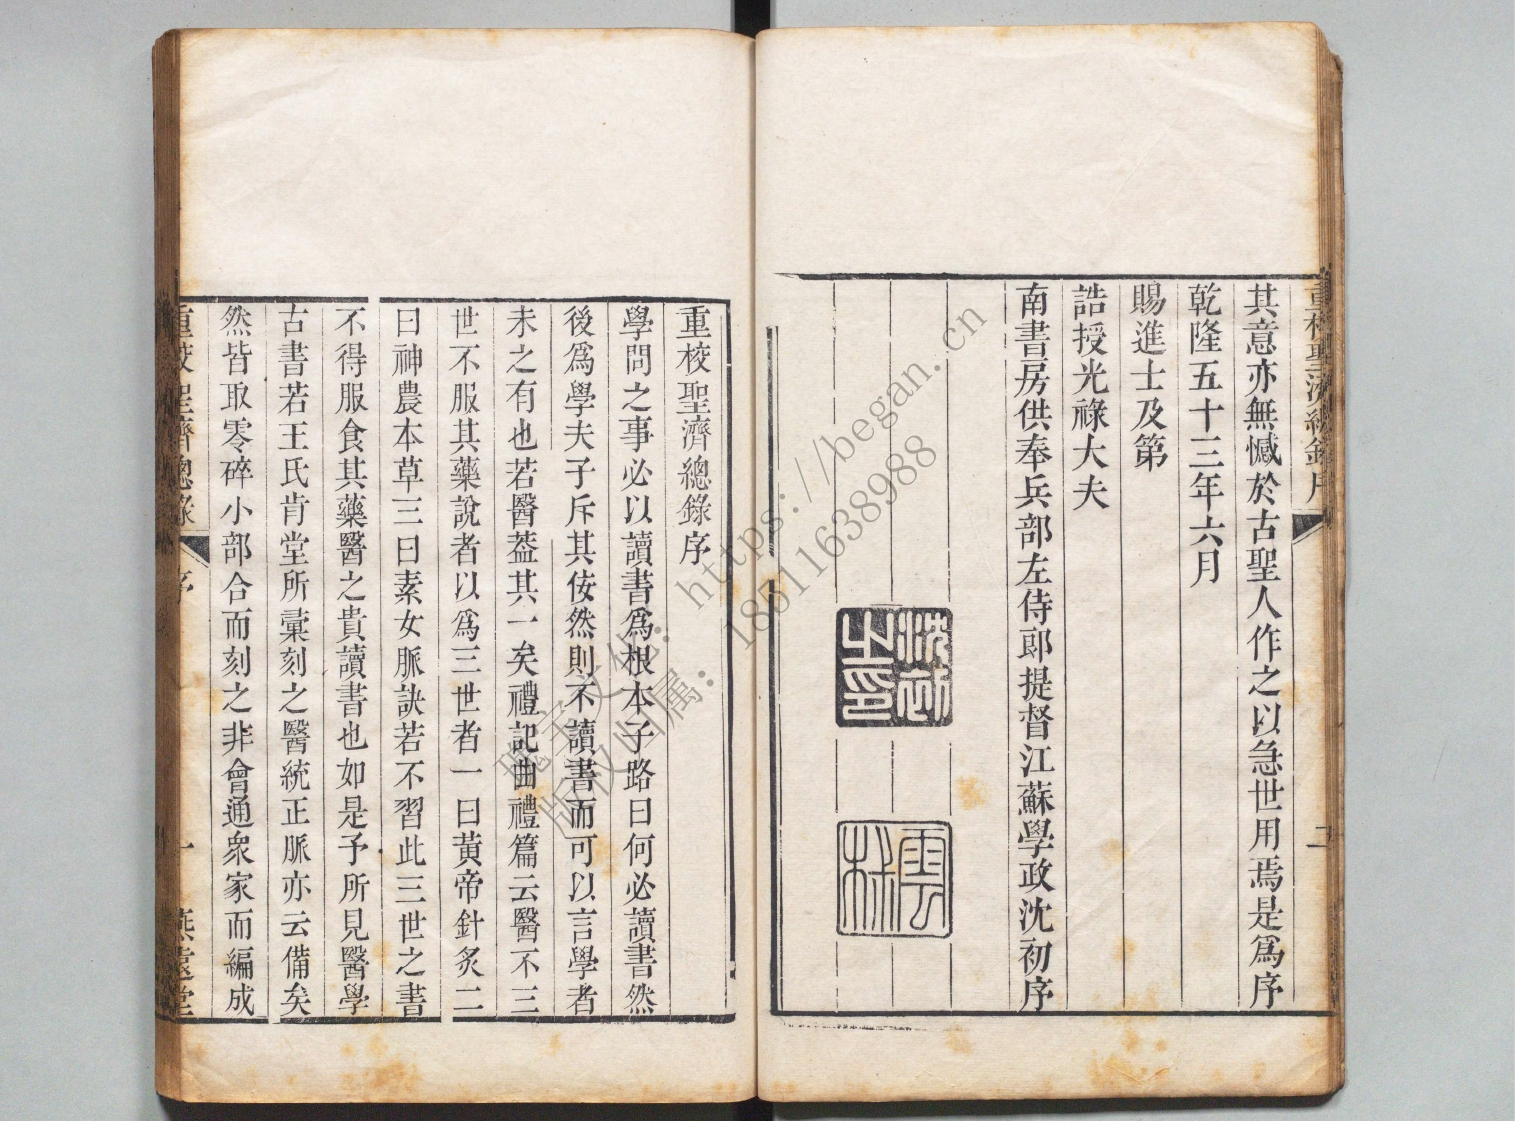 重校聖濟總錄序
二
其意亦無憾於古聖人作之以急世用焉是爲序
乾隆五十三年六月
賜進士及第
誥授光祿大夫
南書房供奉兵部左侍郎提督江蘇學政沈初序
沈初
之印
雲
林
重校聖濟總錄序
學問之事必以讀書爲根本子路曰何必讀書然
後爲學夫子斥其佞然則不讀書而可以言學者
未之有也若醫葢其一矣禮記曲禮篇云醫不三
世不服其藥說者以爲三世者一曰黃帝針炙二
曰神農本草三曰素女脈訣若不習此三世之書
不得服食其藥醫之貴讀書也如是予所見醫學
古書若王氏肯堂所彙刻之醫統正脈亦云備矣
然皆取零碎小部合而刻之非會通衆家而編成
重校聖濟總錄
序
一
燕遠堂
https://began.cn
版权归属：18511638988